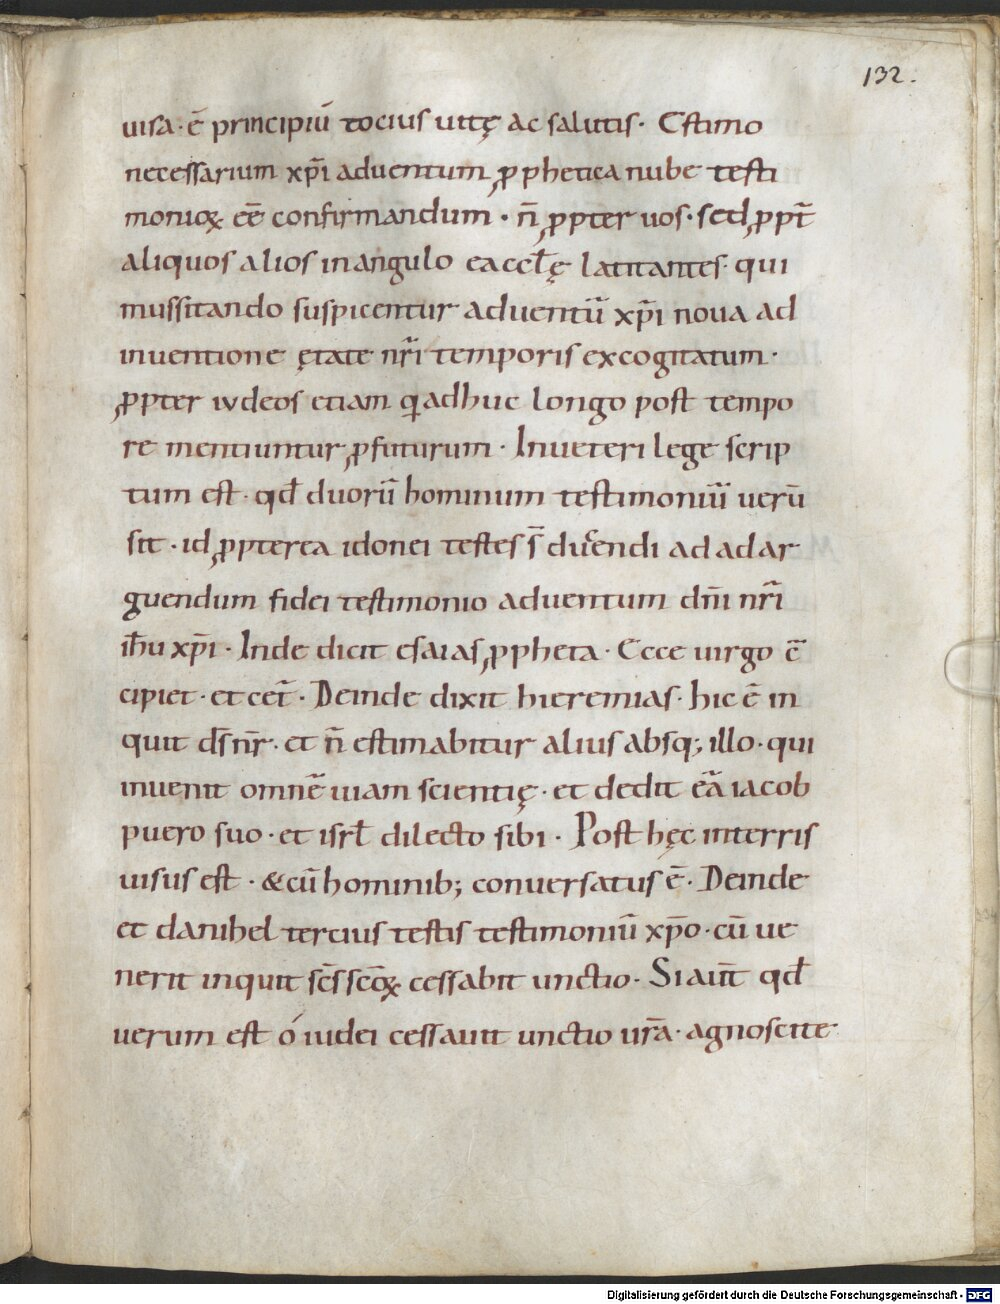 132.
uisa · ē principiū tocius uitę ac salutis · Estimo
necessarium xp̄i aduentum ꝓphetica nube testi
monioꝝ eē confirmandum · n̄ ꝓpter uos · sed ꝓpt̄
aliquos alios in angulo eaccl̄ę latitantes · qui
mussitando suspicentur aduentū xp̄i noua ad
inuentione ętate nr̄i temporis excogitatum ·
ꝓpter iudeos etiam q̄ adhuc longo post tempo
re mentiuntur ꝓfuturum · In ueteri lege scrip
tum est · qd̄ duorū hominum testimoniū uerū
sit · id ꝓpterea idonei testes s̄ ducendi ad adar
guendum fidei testimonio aduentum dn̄i nr̄i
ih̄u xp̄i · Inde dicit esaias ꝓpheta · Ecce uirgo c̄
cipiet · et cet̄ · Deinde dixit hieremias · hic ē in
quit ds̄ nr̄ · et n̄ estimabitur alius absq; illo · qui
inuenit omnē uiam scientię · et dedit eā iacob
puero suo · et isrl̄ dilecto sibi · Post hęc in terris
uisus est · & cū hominib; conuersatus ē · Deinde
et danihel tercius testis testimoniū xp̄o · cū ue
nerit inquit sc̄s sc̄oꝝ cessabit unctio · Si aut̄ qd̄
uerum est ó iudei cessauit unctio ur̄a · agnoscite
Digitalisierung gefördert durch die Deutsche Forschungsgemeinschaft - DFG